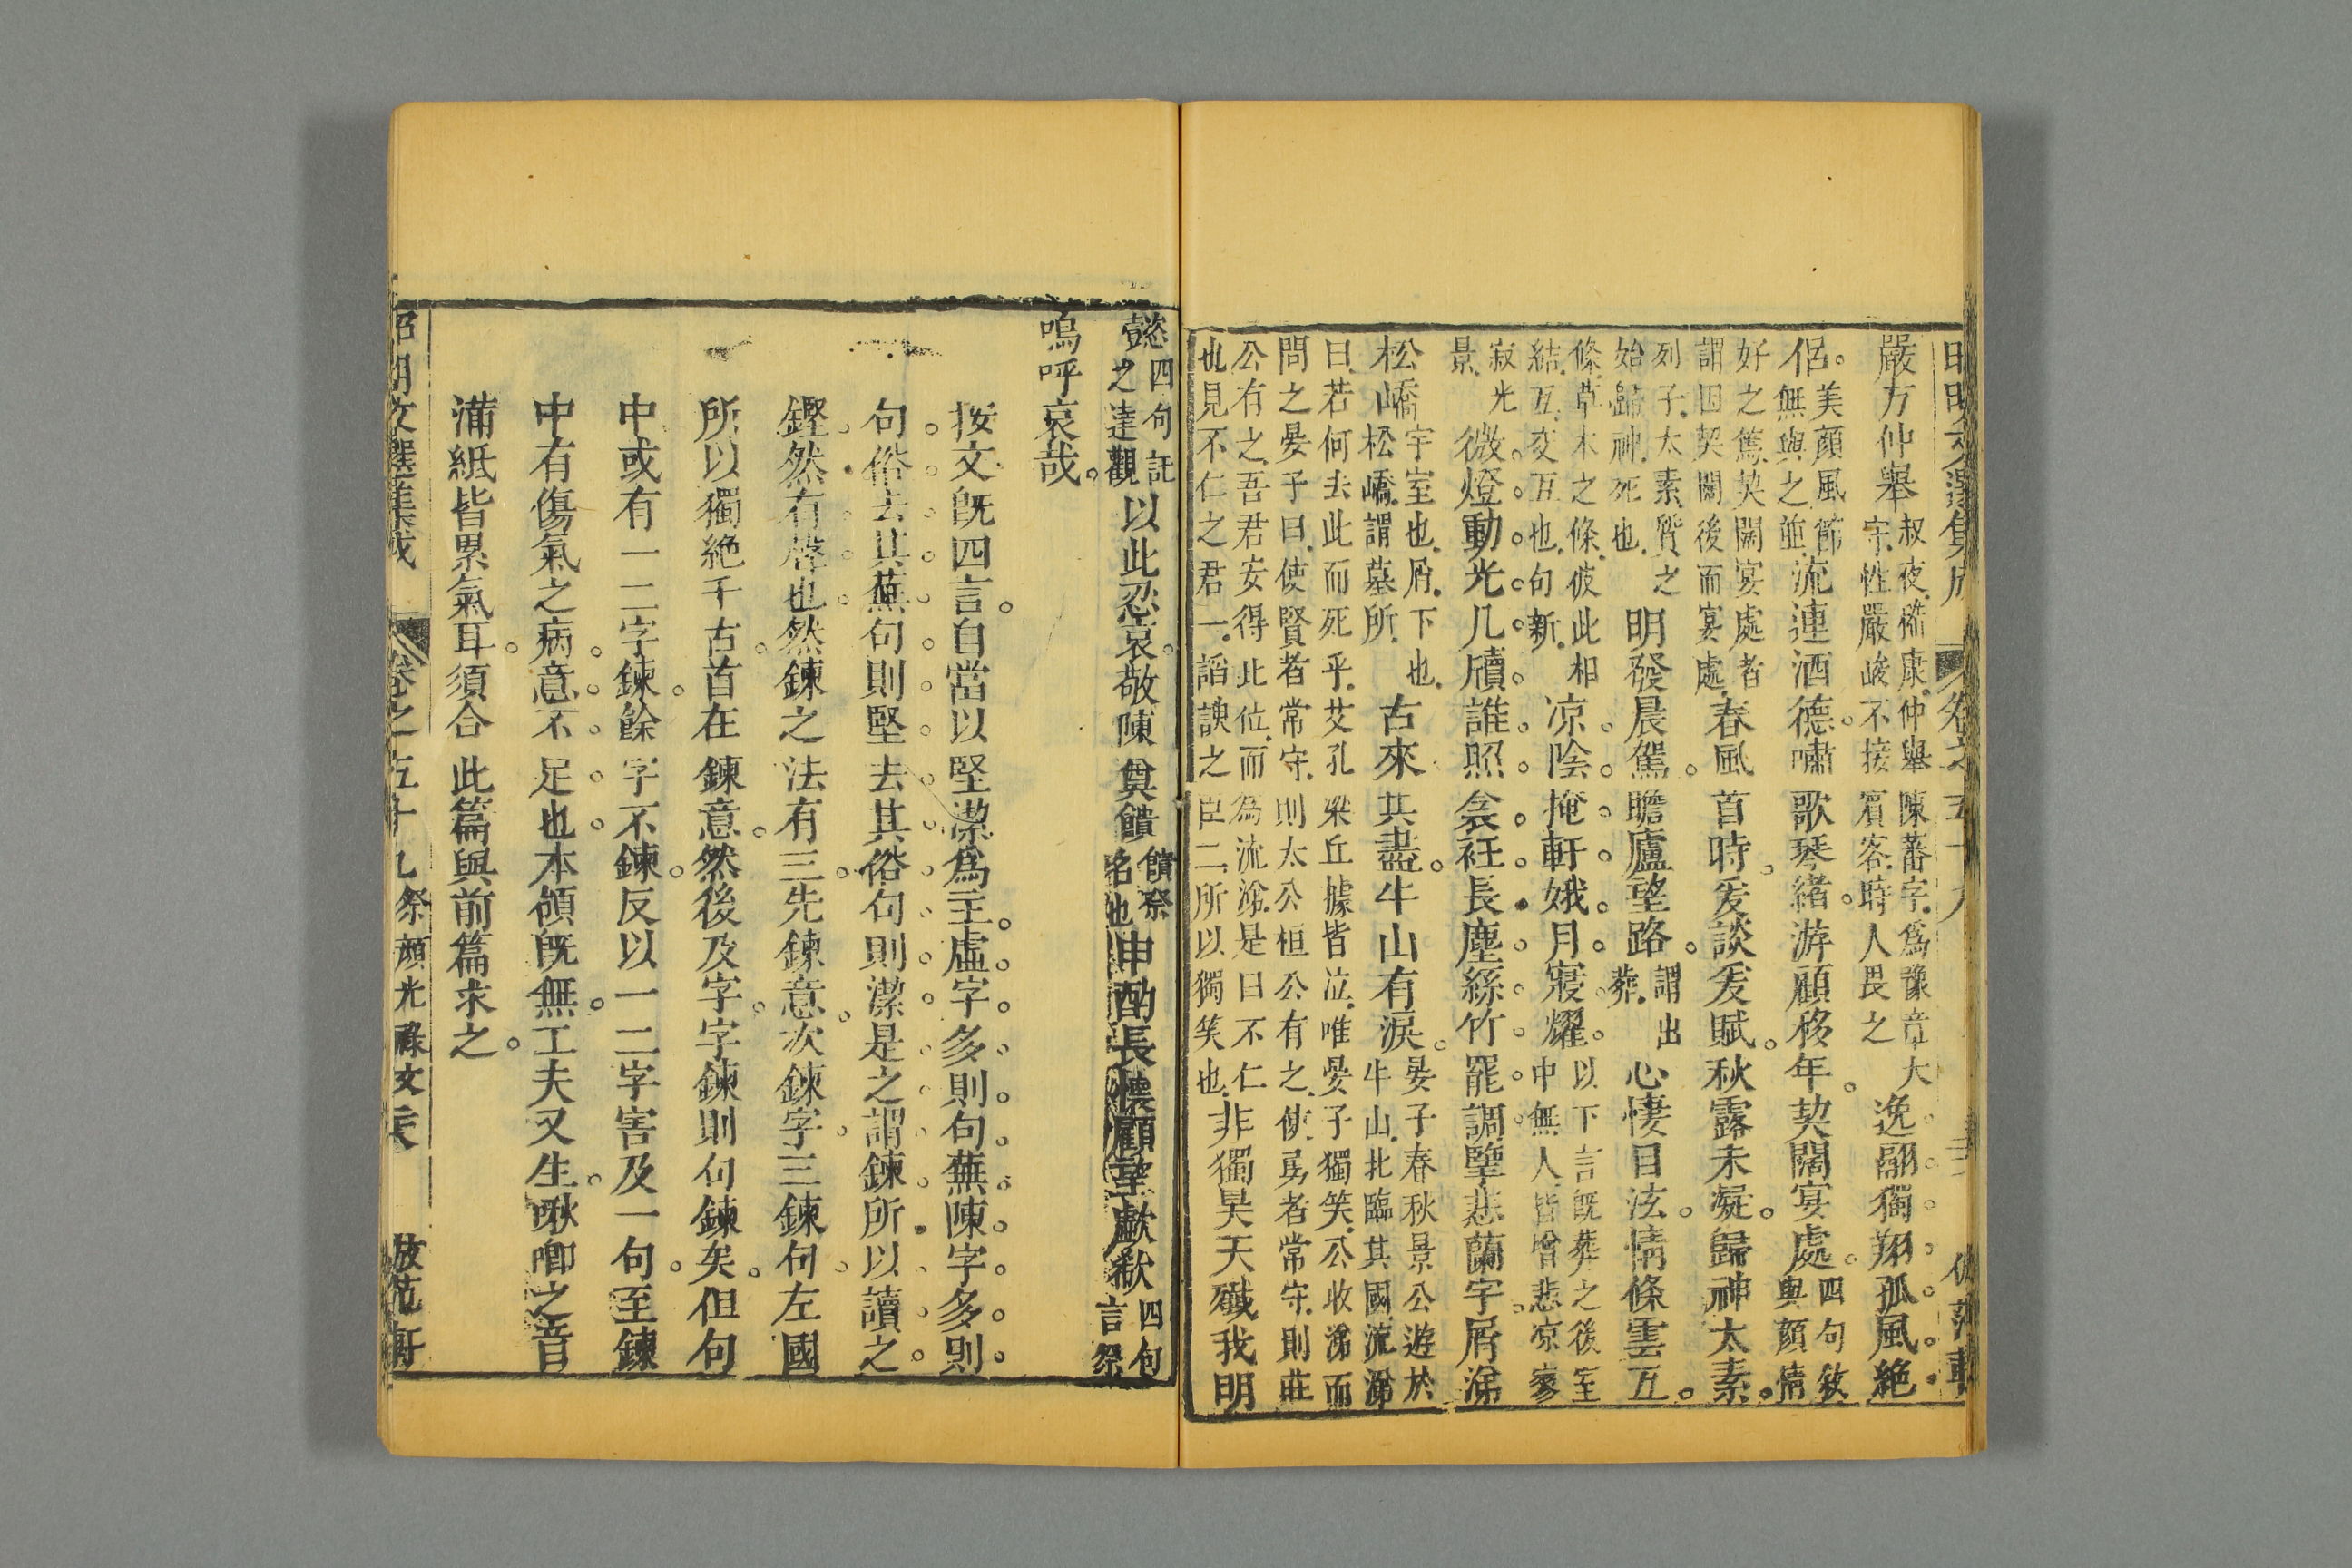 昭明文選集成 卷之五十九
嚴方仲舉叔夜嵇康仲舉陳蕃字爲豫章大字性嚴峻不接賓客時人畏之逸翮獨翔孤風絕
侶。美顏風節無與之並流連酒德。嘯歌琴緒。游顧移年。契闊宴處。四句敘與顏情
好之篤契闊宴處者謂因契闊後而宴處春風首時。爰談爰賦。秋露未凝。歸神太素。
列子太素質之始歸神死也明發晨駕。瞻廬望路。謂出葬心悽目泫。情條雲互。
條草木之條彼此相結互交互也句新凉陰掩軒。娥月寢耀。以下言旣葬之後室中無人皆增悲凉寥
寂光景微燈動光。几牘誰照。衾衽長塵。絲竹罷調。擥悲蘭宇。屑涕
松嶠宇室也屑下也松嶠謂墓所古來共盡。牛山有淚。晏子春秋景公遊於牛山北臨其國流涕
曰若何去此而死乎艾孔梁丘據皆泣唯晏子獨笑公收涕而
問之晏子曰使賢者常守則太公桓公有之使勇者常守則莊
公有之吾君安得此位而為流涕是曰不仁也見不仁之君一諂諛之臣二所以獨笑也非獨昊天殲我明
懿四句託之達觀以此忍哀。敬陳奠饋饋祭名也申酌長懷顧望歔欷四句言祭
嗚呼哀哉。
按文旣四言。自當以堅潔爲主。虛字多則句蕪。陳字多則
句俗。去其蕪句則堅。去其俗句則潔。是之謂鍊。所以讀之
鏗然有聲也。然鍊之法有三。先鍊意。次鍊字。三鍊句。左國
所以獨絶千古。首在鍊意。然後及字。字鍊則句鍊矣。但句
中或有一二字鍊。餘字不鍊。反以一二字害及一句。至鍊
中有傷氣之病。意不足也。本領旣無。工夫又生。啾唧之音
滿紙皆累氣耳。須合此篇與前篇求之。
昭明文選集成 卷之五十九祭顏光祿文 倣范軒